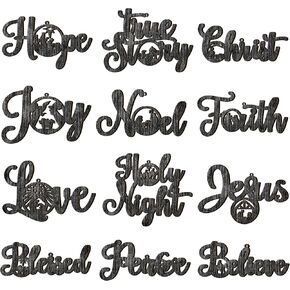 Hope
true
Story
Christ
Joy
Noel
Faith
Love
Holy
Night
Jesus
Blessed
Peace
Believe